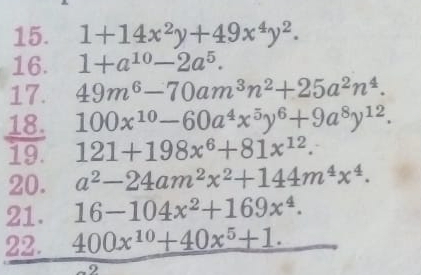 15. 1+14x²y+49x⁴y².
16. 1+a¹⁰−2a⁵.
17. 49m⁶−70am³n²+25a²n⁴.
18. 100x¹⁰−60a⁴x⁵y⁶+9a⁸y¹².
19. 121+198x⁶+81x¹².
20. a²−24am²x²+144m⁴x⁴.
21. 16−104x²+169x⁴.
22. 400x¹⁰+40x⁵+1.